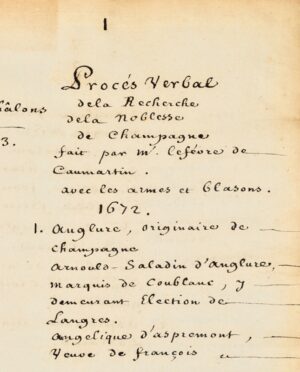 1
Procés Verbal
dela Recherche
dela Noblesse
de Champagne
fait par Mr. lefévre de
Caumartin.
avec les armes et blasons.
1672.
1. Anglure, originaire de
Champagne
Arnould-Saladin d'Anglure,
Marquis de Coublanc, y
demeurant Election de
Langres.
Angelique d'aspremont,
Veuve de françois
hâlons
3.